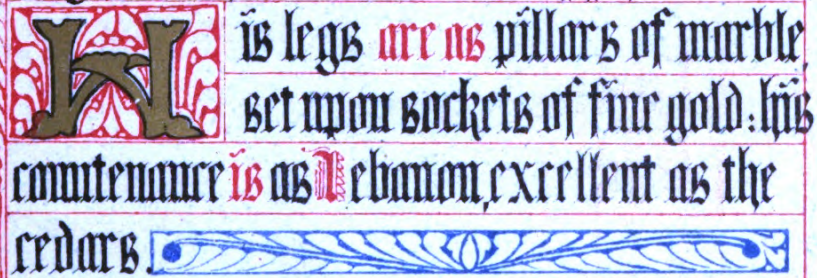 His legs are as pillars of marble,
set upon sockets of fine gold: his
countenance is as Lebanon, excellent as the
cedars.